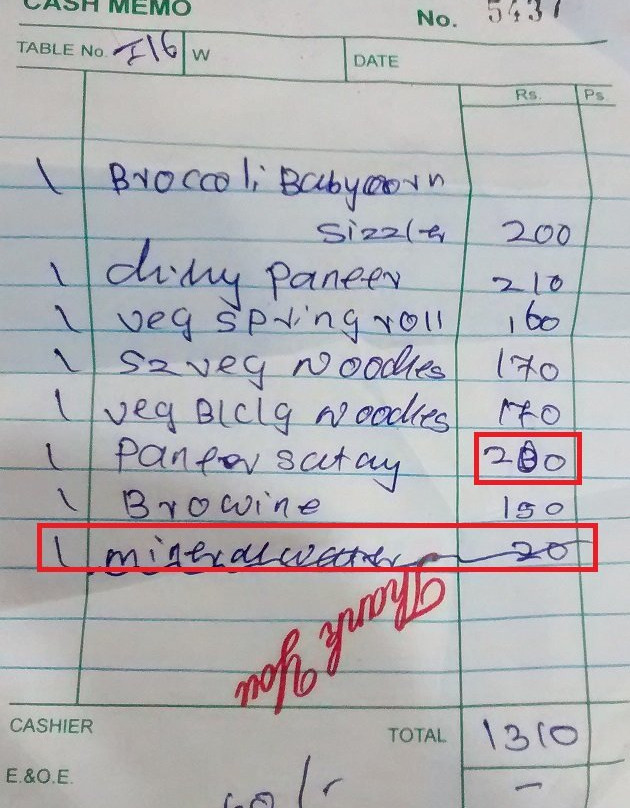 CASH MEMO
No. 5437
TABLE No. I16 W DATE
Rs. Ps
1 Broccoli Babycorn
Sizzler 200
1 paneer 210
1 veg spring roll 160
1 Sz veg Noodles 170
1 veg Noodles 170
1 Paneer satay
1 Browine 150
1 mineral water 20
Thank You
CASHIER TOTAL 1310
E.&O.E. -